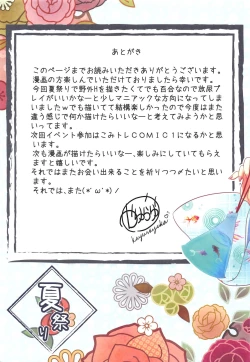 あとがき
このページまでお読みいただきありがとうございます。
漫画の方楽しんでいただけておりましたら幸いです。
今回夏祭りで野外Hを描きたくてでも百合なので放尿プ
レイがいいかなーと少しマニアックな方向になってしま
いましたwでも描いてて結構楽しかったので今度はまた
違う感じで何か描けたらいいなーと考えてみようかと思
いってます。
次回イベント参加はごみトレCOMIC1になるかと思いま
す。
次も漫画が描けたらいいなー、楽しみにしていてもらえ
ますと嬉しいです。
それではまたお会い出来ることを祈りつつ〆たいと思い
ます。
それでは、また(*´ω`*)ﾉ
夏祭り